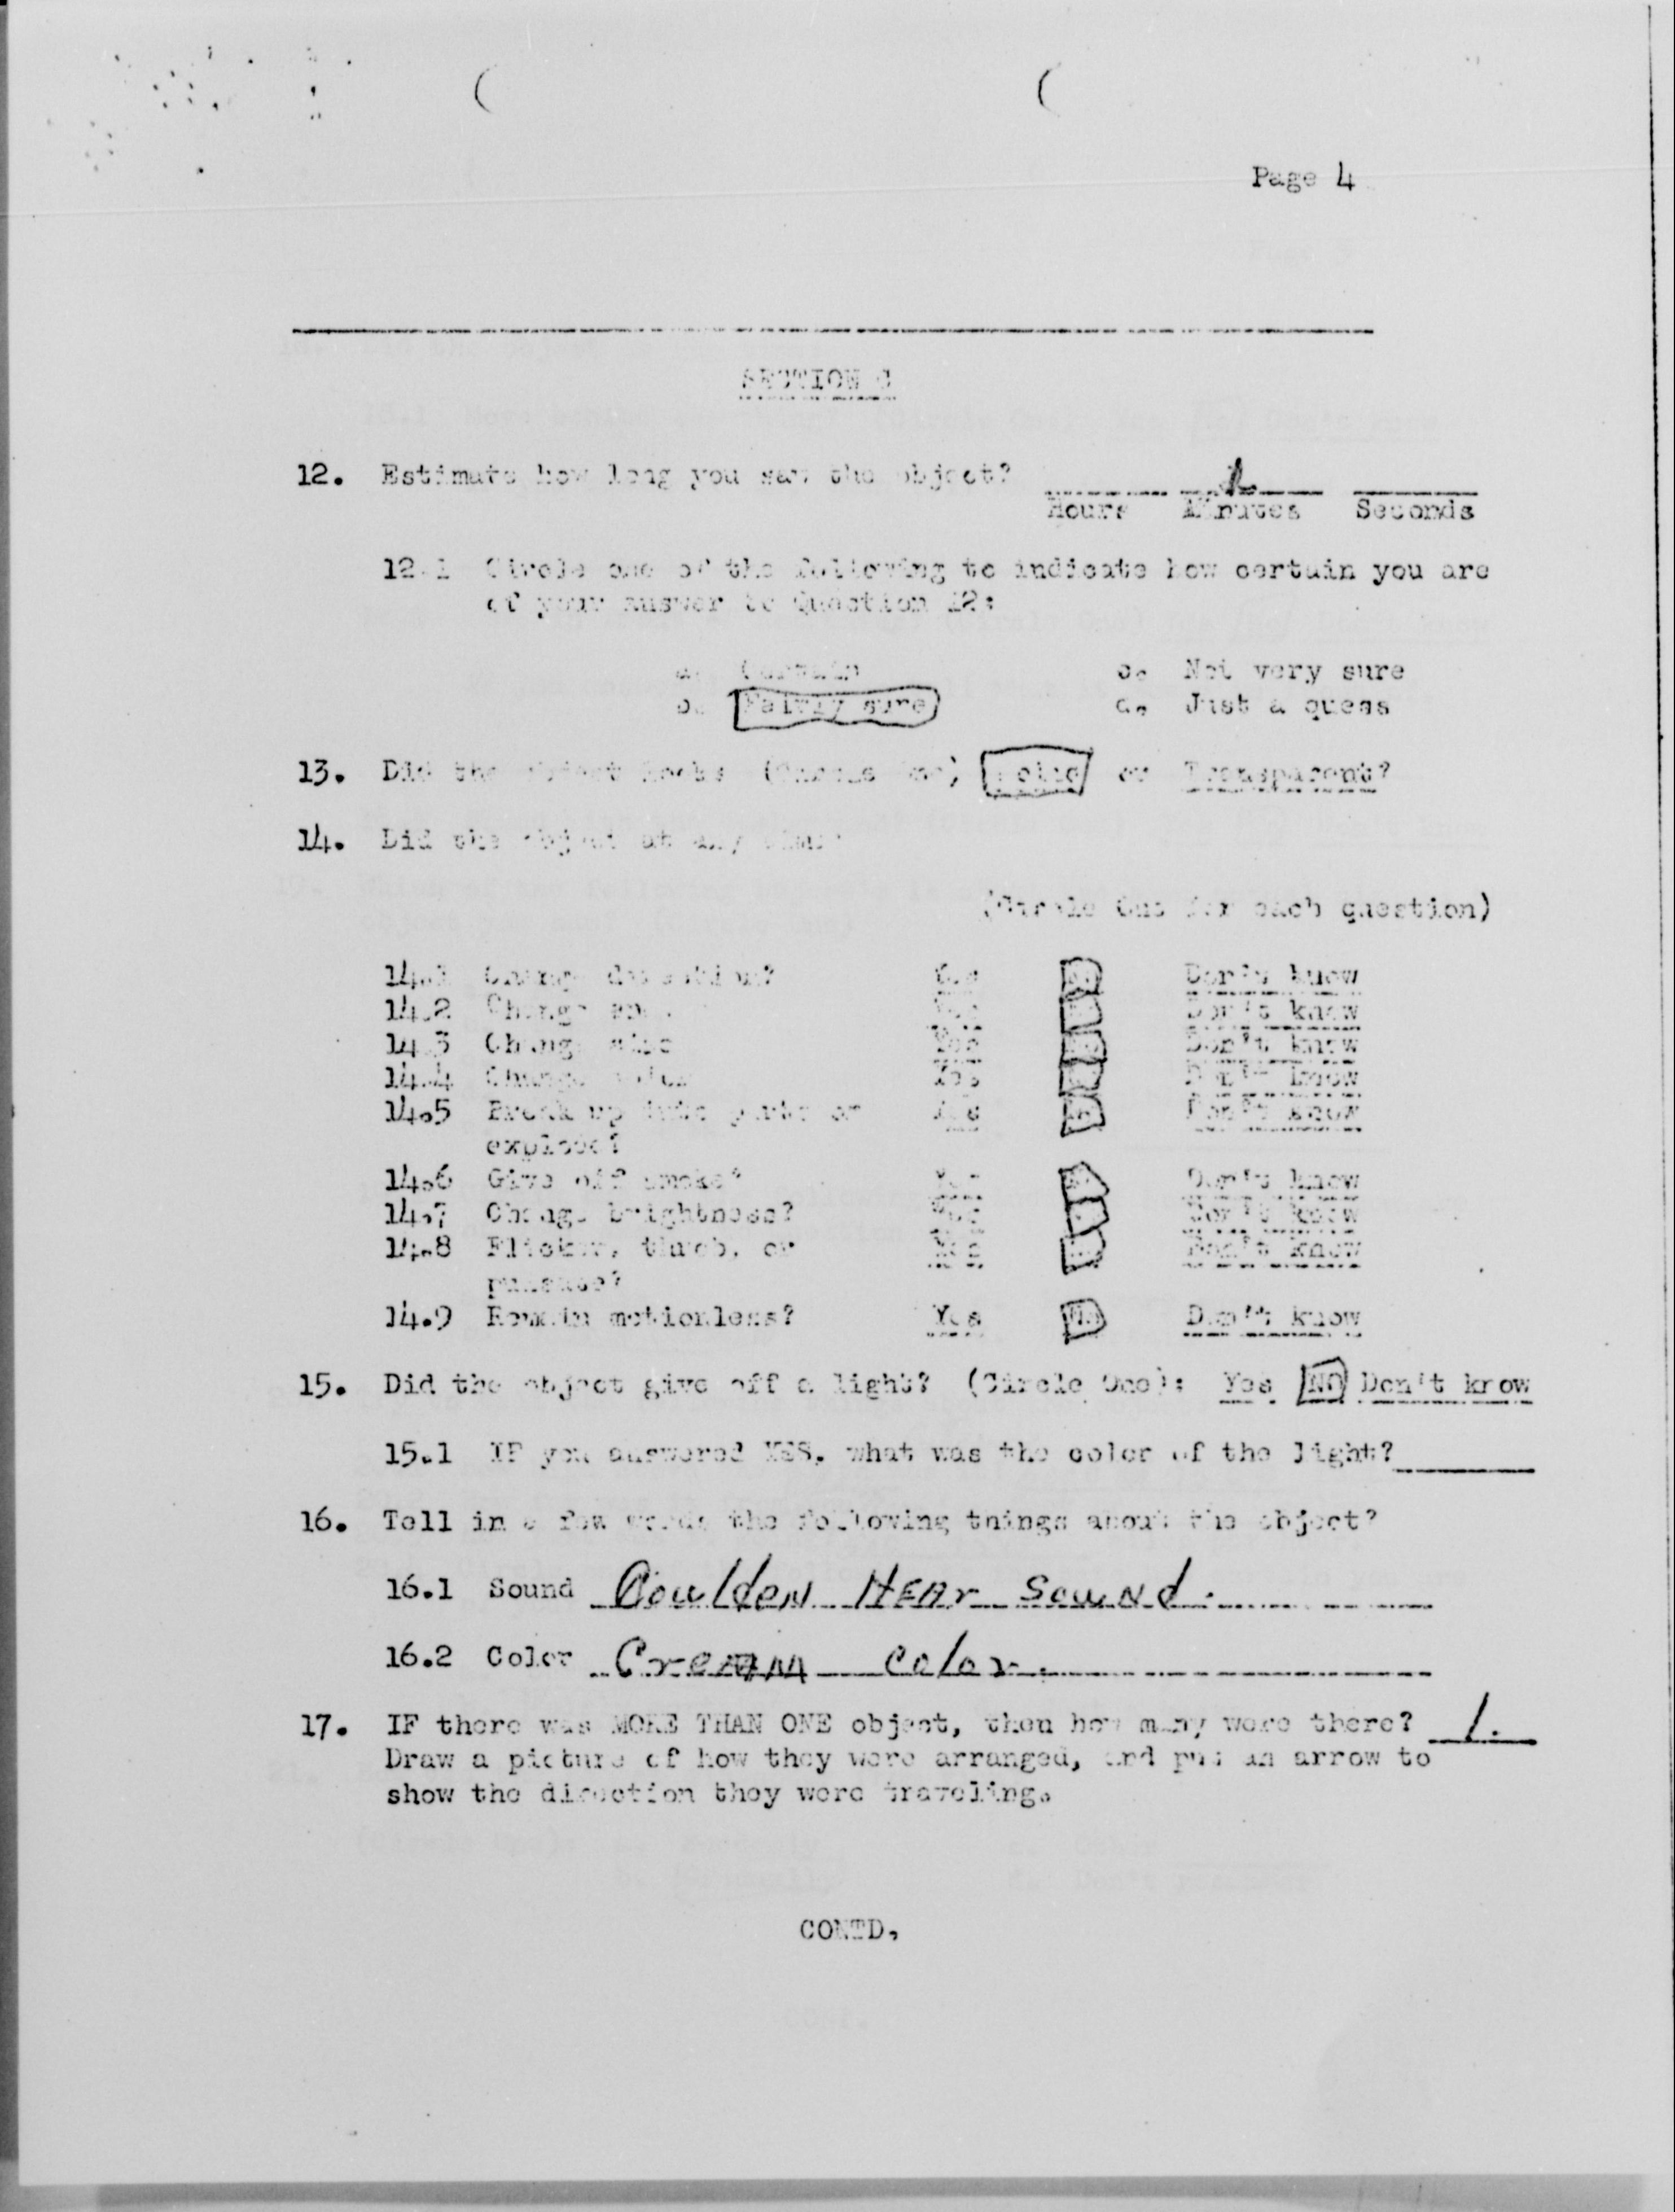 Page 4
SECTION C
12. Estimate how long you saw the object?
Hours Minutes Seconds
12.1 Circle one of the following to indicate how certain you are
of your answer to Question 12:
a. Certain c. Not very sure
b. Fairly sure d. Just a quess
13. Did the object look: (Circle One) Solid or Transparent?
14. Did the object at any time:
(Circle One for each question)
14.1 Change direction? Yes No Don't know
14.2 Change Yes Don't know
14.3 Change size Yes No Don't know
14.4 Change color Yes No Don't know
14.5 Break up into parts or Yes No Don't know
explode?
14.6 Give off smoke? Yes No Don't know
14.7 Change brightness? Yes No Don't know
14.8 Flicker, throb, or Yes No Don't know
pulsate?
14.9 Remain motionless? Yes No Don't know
15. Did the object give off a light? (Circle One): Yes NO Don't know
15.1 IF you answered YES, what was the color of the light?
16. Tell in a few words the following things about the object?
16.1 Sound CoulDeN HEAr SouNd.
16.2 Color CreAM Color.
17. IF there was MORE THAN ONE object, then how many were there? 1.
Draw a picture of how they were arranged, and put an arrow to
show the direction they were traveling.
CONTD,